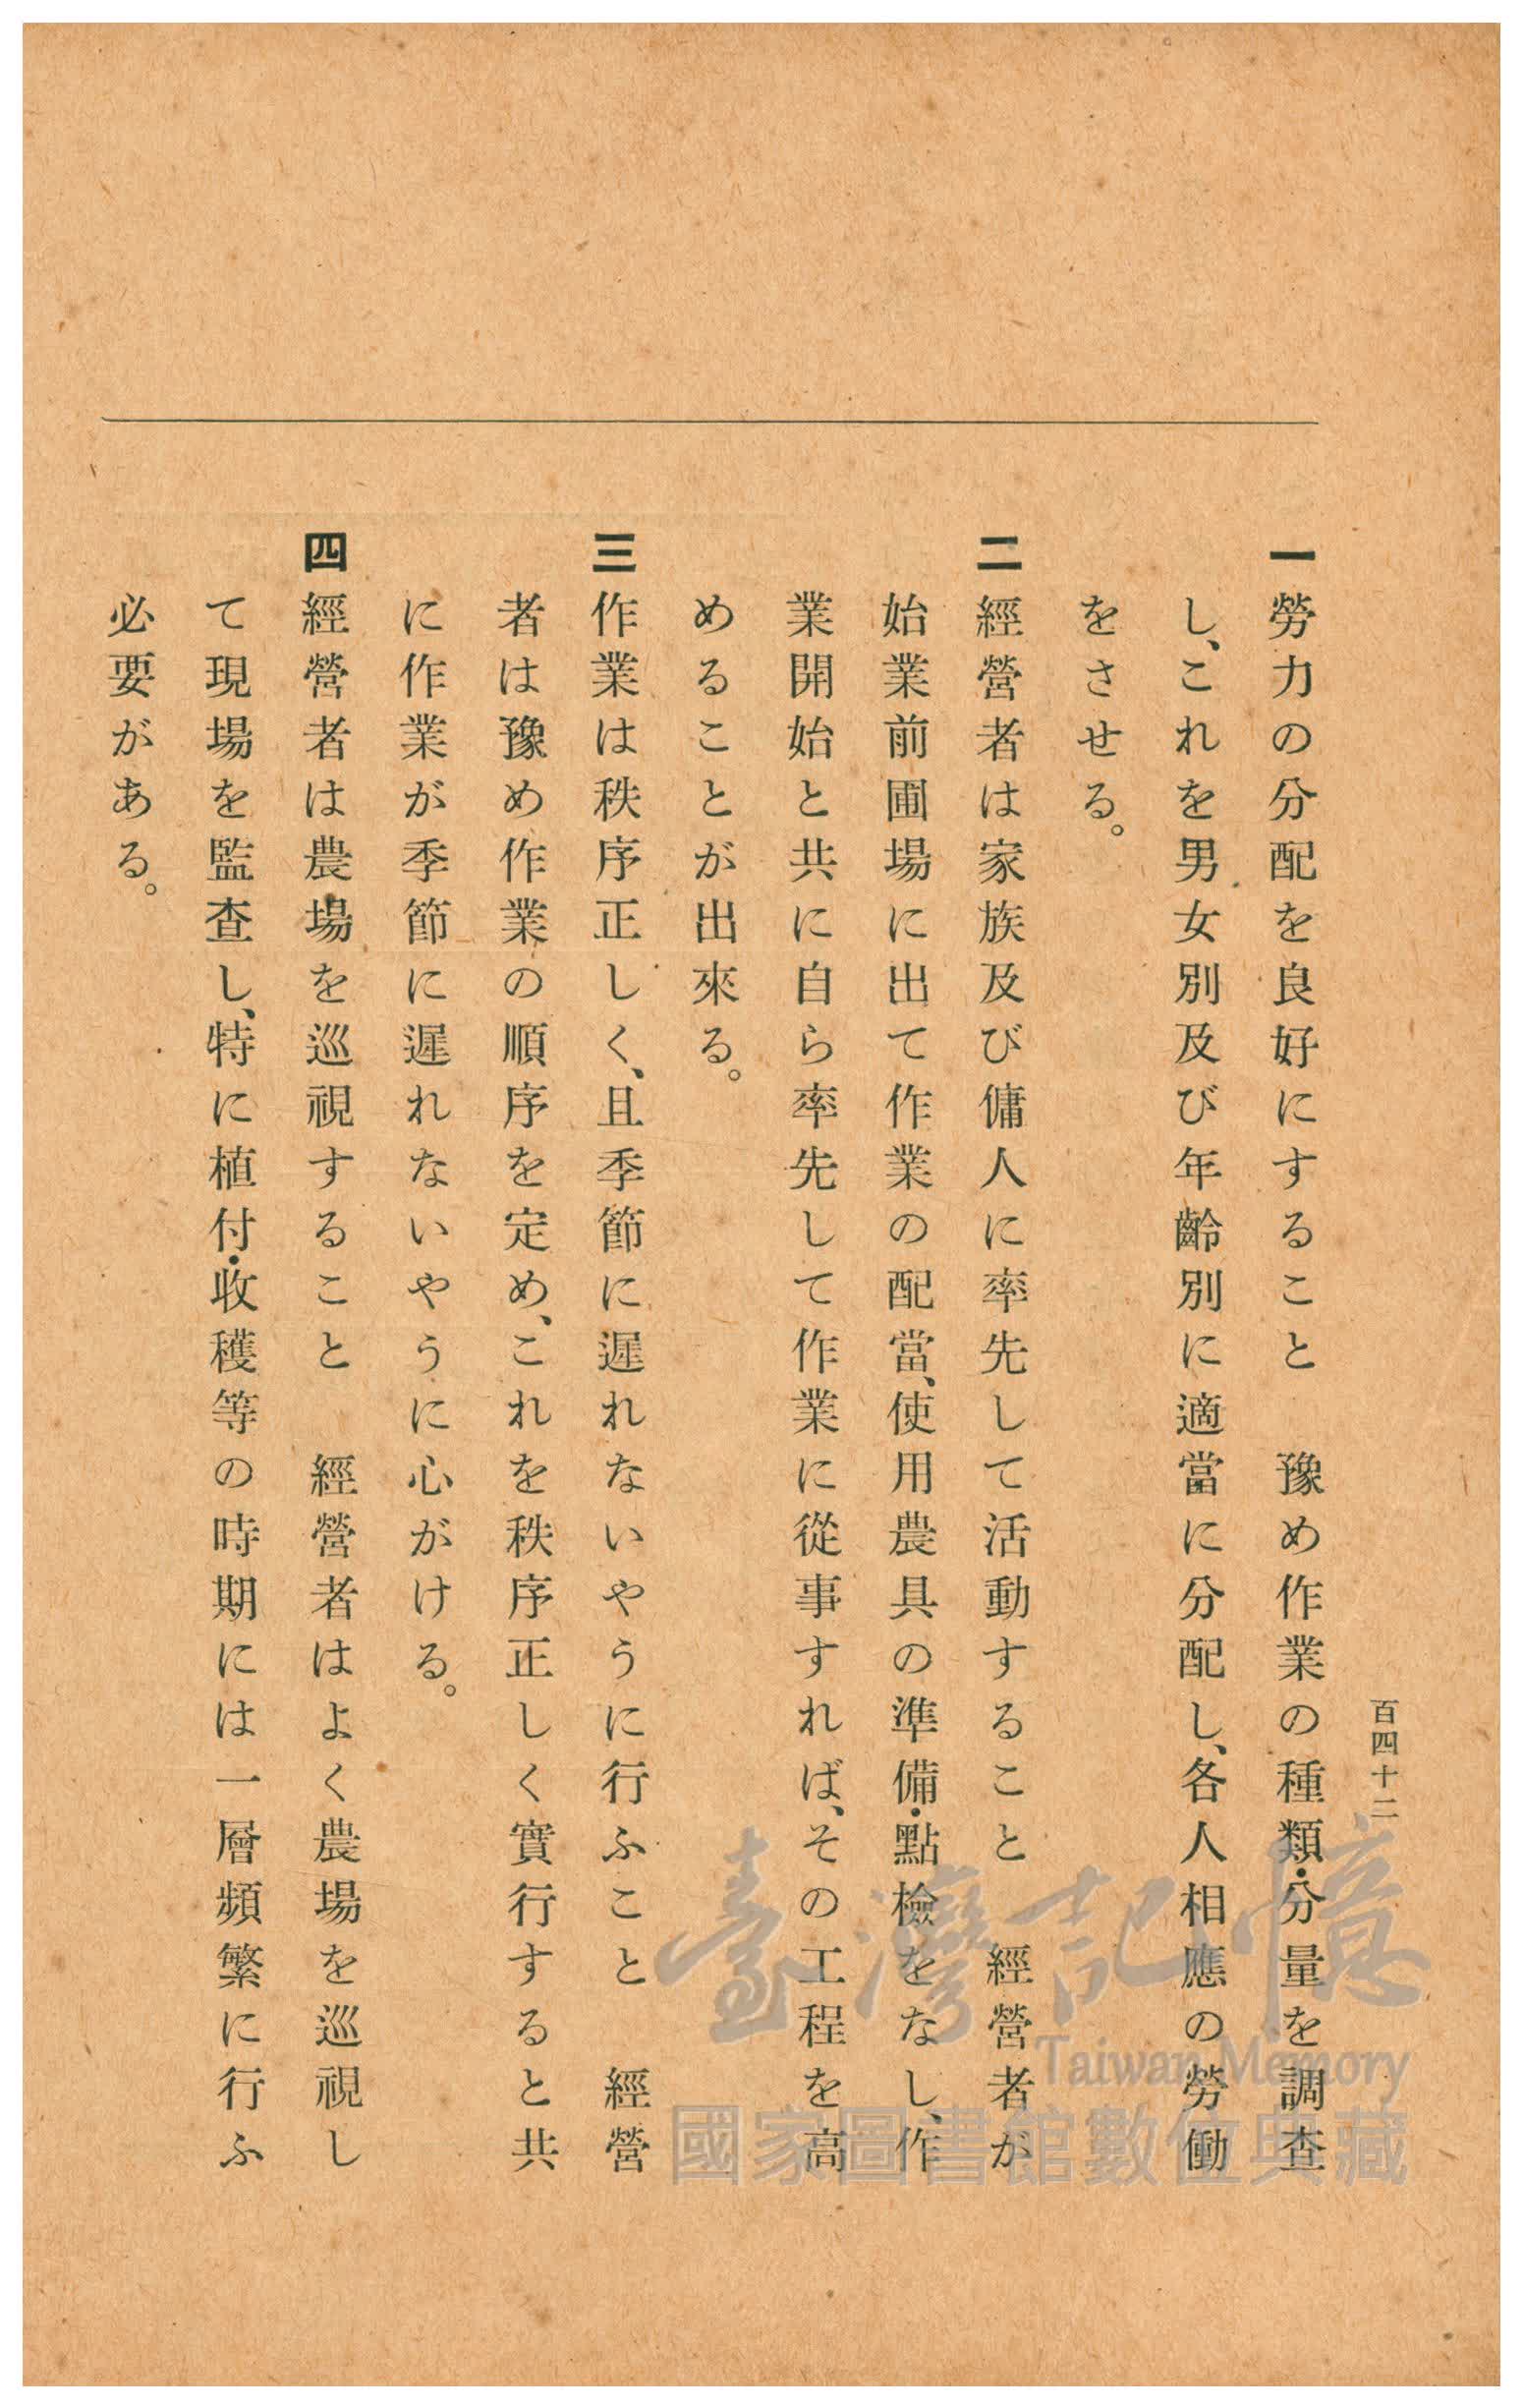 百四十二
一 勞力の分配を良好にすること　豫め作業の種類・分量を調査
し、これを男女別及び年齡別に適當に分配し、各人相應の勞働
をさせる。
二 經營者は家族及び傭人に率先して活動すること　經營者が
始業前圃場に出て作業の配當、使用農具の準備・點檢をなし、作
業開始と共に自ら率先して作業に從事すれば、その工程を高
めることが出來る。
三 作業は秩序正しく、且季節に遲れないやうに行ふこと　經營
者は豫め作業の順序を定め、これを秩序正しく實行すると共
に作業が季節に遲れないやうに心がける。
四 經營者は農場を巡視すること　經營者はよく農場を巡視し
て現場を監查し、特に植付・收穫等の時期には一層頻繁に行ふ
必要がある。
臺灣記憶
Taiwan Memory
國家圖書館數位典藏